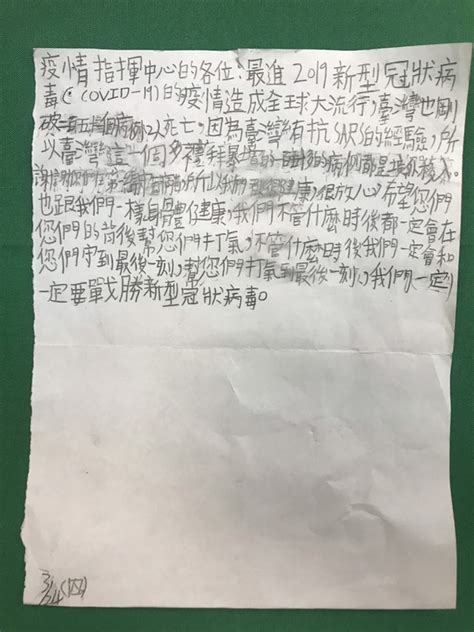 疫情指揮中心的各位:最進2019新型冠狀病
毒(COVID-19)的疫情造成全球大流行,臺灣也剛
破一百五十個病例2以死亡,因為臺灣有抗SARS的經驗,所
以臺灣這一個多禮拜暴增的一百多的病例都是境外移入。
謝謝您們在第一線 所以我們 健康,很放心,希望您們
也跟我們一樣身體健康,我們不管什麼時後都一定會在
您們的背後幫您們打氣,不管什麼時後我們一定會和
您們守到最後一刻,幫您們打氣到最後一刻,我們一定
一定要戰勝新型冠狀病毒。
3/24(四)